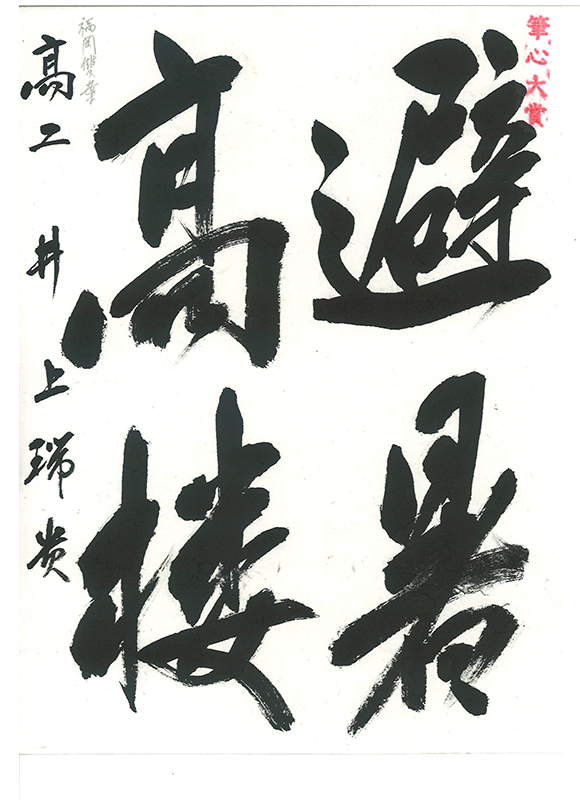 筆心大賞
避暑
高楼
福岡雙葉
高二 井上瑞贵